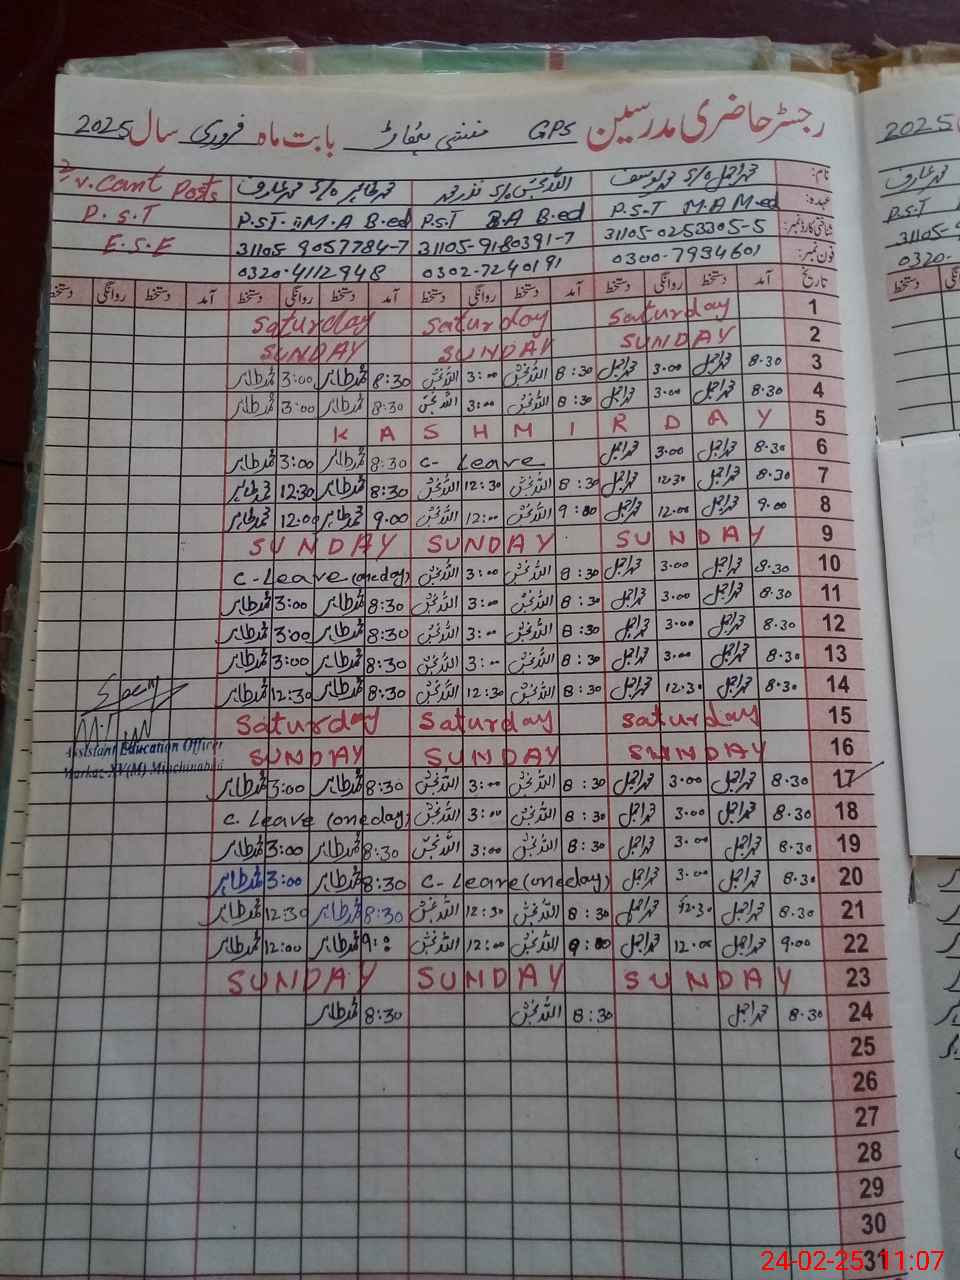 رجسٹر حاضری مدرسین GPS منشی بابت ماہ فروری سال 2025
نام: محمد اجمل S/o محمد یوسف اللہ بخش S/o نذر محمد محمد طاہر S/o محمد عارف 2 v.cant Posts
عہدہ: P.S.T M.A M.ed P.S.T B.A B.ed P.S.T M.A B.ed P.S.T
شناختی کارڈ نمبر: 31105-0253305-5 31105-9180391-7 31105-9057784-7 E.S.E
فون نمبر: 0300-7994601 0302-7240191 0320-4112948
تاریخ آمد دستخط روانگی دستخط آمد دستخط روانگی دستخط آمد دستخط روانگی دستخط آمد دستخط روانگی دستخط
1 Saturday Saturday Saturday
2 SUNDAY SUNDAY SUNDAY
3 8.30 محمد اجمل 3.00 محمد اجمل 8:30 اللہ بخش 3:00 اللہ بخش 8:30 محمد طاہر 3:00 محمد طاہر
4 8.30 محمد اجمل 3.00 محمد اجمل 8:30 اللہ بخش 3:00 اللہ بخش 8:30 محمد طاہر 3:00 محمد طاہر
5 KASHMIR DAY
6 8.30 محمد اجمل 3.00 محمد اجمل C- Leave 8:30 محمد طاہر 3:00 محمد طاہر
7 8.30 محمد اجمل 12.30 محمد اجمل 8:30 اللہ بخش 12:30 اللہ بخش 8:30 محمد طاہر 12:30 محمد طاہر
8 9.00 محمد اجمل 12.00 محمد اجمل 9:00 اللہ بخش 12:00 اللہ بخش 9.00 محمد طاہر 12:00 محمد طاہر
9 SUNDAY SUNDAY SUNDAY
10 8.30 محمد اجمل 3.00 محمد اجمل 8:30 اللہ بخش 3:00 اللہ بخش C-Leave (oneday)
11 8.30 محمد اجمل 3.00 محمد اجمل 8:30 اللہ بخش 3:00 اللہ بخش 8:30 محمد طاہر 3:00 محمد طاہر
12 8.30 محمد اجمل 3.00 محمد اجمل 8:30 اللہ بخش 3:00 اللہ بخش 8:30 محمد طاہر 3:00 محمد طاہر
13 8.30 محمد اجمل 3.00 محمد اجمل 8:30 اللہ بخش 3:00 اللہ بخش 8:30 محمد طاہر 3:00 محمد طاہر
14 8.30 محمد اجمل 12.30 محمد اجمل 8:30 اللہ بخش 12:30 اللہ بخش 8:30 محمد طاہر 12:30 محمد طاہر
15 Saturday Saturday Saturday
16 SUNDAY SUNDAY SUNDAY
Assistant Education Officer
Markaz XV(M) Minchinabad
17 8.30 محمد اجمل 3.00 محمد اجمل 8:30 اللہ بخش 3:00 اللہ بخش 8:30 محمد طاہر 3:00 محمد طاہر
18 8.30 محمد اجمل 3.00 محمد اجمل 8:30 اللہ بخش 3:00 اللہ بخش C. Leave (oneday)
19 8.30 محمد اجمل 3.00 محمد اجمل 8:30 اللہ بخش 3:00 اللہ بخش 8:30 محمد طاہر 3:00 محمد طاہر
20 8.30 محمد اجمل 3.00 محمد اجمل C- Leave (oneday) 8:30 محمد طاہر 3:00 محمد طاہر
21 8.30 محمد اجمل 12.30 محمد اجمل 8:30 اللہ بخش 12:30 اللہ بخش 8:30 محمد طاہر 12:30 محمد طاہر
22 9.00 محمد اجمل 12.00 محمد اجمل 9:00 اللہ بخش 12:00 اللہ بخش 9:00 محمد طاہر 12:00 محمد طاہر
23 SUNDAY SUNDAY SUNDAY
24 8.30 محمد اجمل 8:30 اللہ بخش 8:30 محمد طاہر
25
26
27
28
29
30
31
24-02-25 11:07
2025
محمد عارف
P.S.T
31105-9
0320-
دستخط